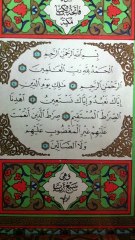 بِسْمِ اللَّهِ الرَّحْمَٰنِ الرَّحِيمِ
الْحَمْدُ لِلَّهِ رَبِّ الْعَالَمِينَ
الرَّحْمَٰنِ الرَّحِيمِ مَٰلِكِ يَوْمِ الدِّينِ
إِيَّاكَ نَعْبُدُ وَإِيَّاكَ نَسْتَعِينُ اهْدِنَا
الصِّرَاطَ الْمُسْتَقِيمَ صِرَاطَ الَّذِينَ أَنْعَمْتَ
عَلَيْهِمْ غَيْرِ الْمَغْضُوبِ عَلَيْهِمْ
وَلَا الضَّالِّينَ
وهي
سبع آيات